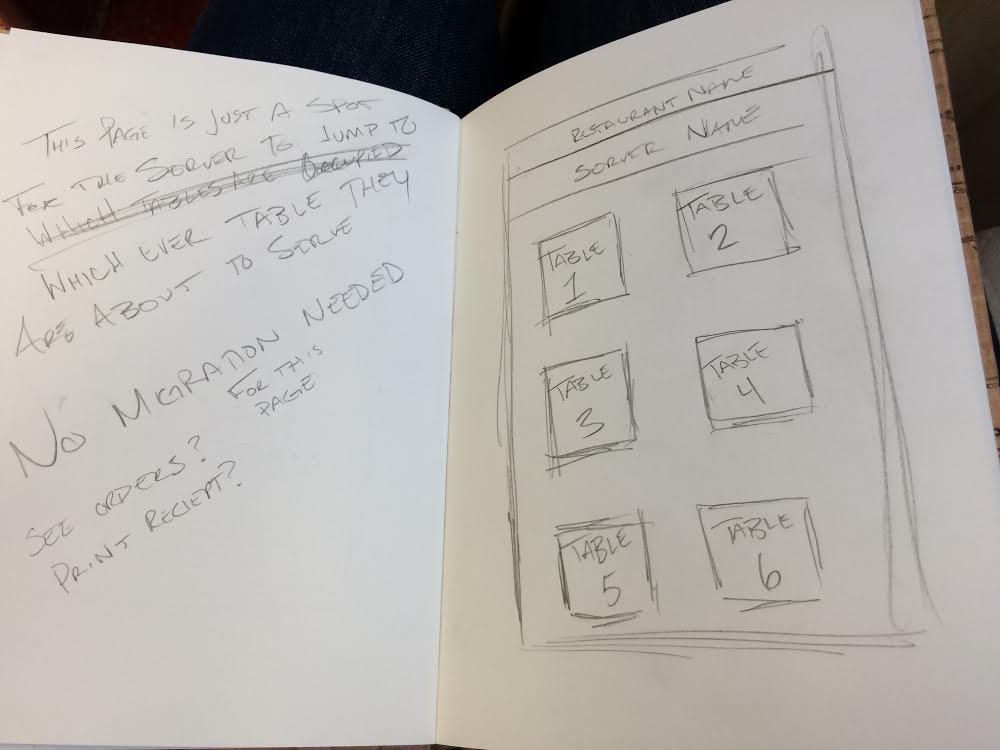 THIS PAGE IS JUST A SPOT
FOR THE SERVER TO JUMP TO
WHICH TABLES ARE OCCUPIED
WHICH EVER TABLE THEY
ARE ABOUT TO SERVE
NO MIGRATION NEEDED
FOR THIS
PAGE
SEE ORDERS?
PRINT RECIEPT?
RESTAURANT NAME
SERVER NAME
TABLE
1
TABLE
2
TABLE
3
TABLE
4
TABLE
5
TABLE
6